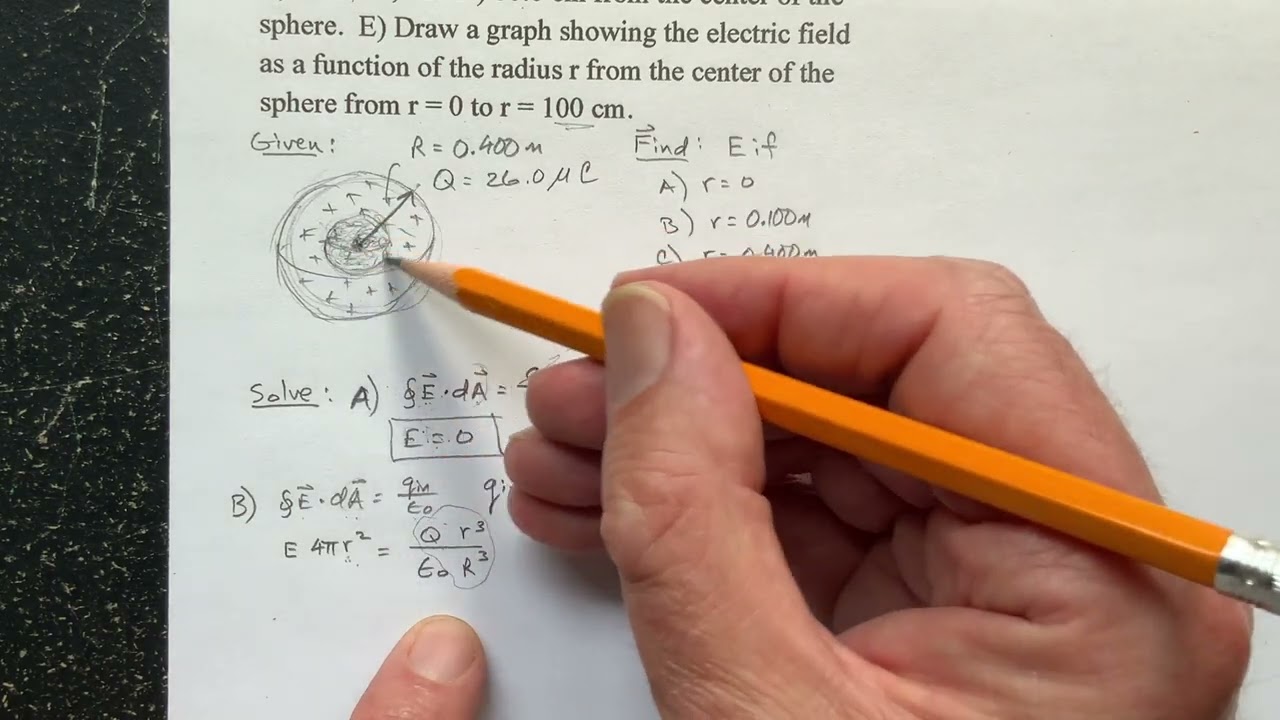 sphere. E) Draw a graph showing the electric field
as a function of the radius r from the center of the
sphere from r = 0 to r = 100 cm.
Given: R = 0.400 m
Q = 26.0 μC
Find: E if
A) r = 0
B) r = 0.100m
C) r = 0.400m
Solve: A) ∮E⃗·dA⃗ =
E = 0
B) ∮E⃗·dA⃗ = qin/ε0
E 4πr² = Q r³/ε0 R³